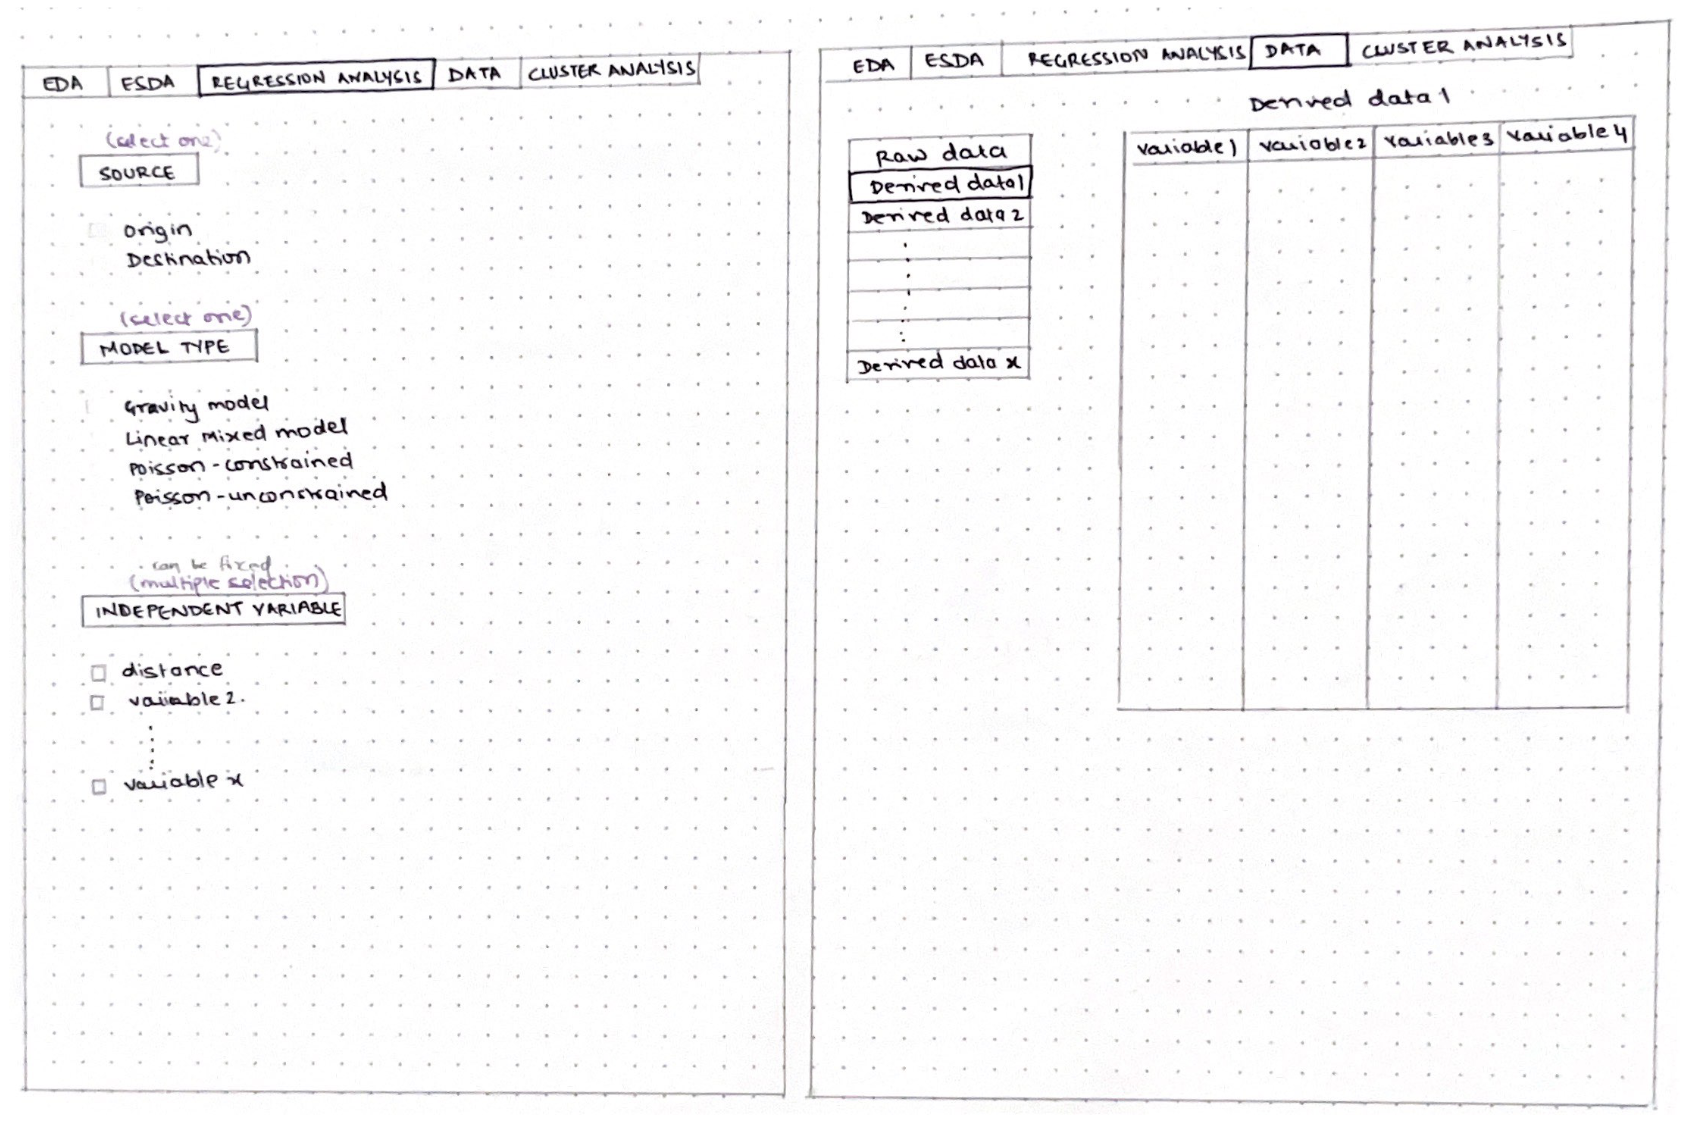 EDA ESDA REGRESSION ANALYSIS DATA CLUSTER ANALYSIS
(select one)
SOURCE
Origin
Destination
(select one)
MODEL TYPE
Gravity model
Linear Mixed model
Poisson-constrained
Poisson-unconstrained
can be fixed
(multiple selection)
INDEPENDENT VARIABLE
distance
variable 2.
variable x
EDA ESDA REGRESSION ANALYSIS DATA CLUSTER ANALYSIS
Raw data
Derived data1
Derived data 2
Derived data x
Derived data 1
variable1 variable2 variable3 variable 4